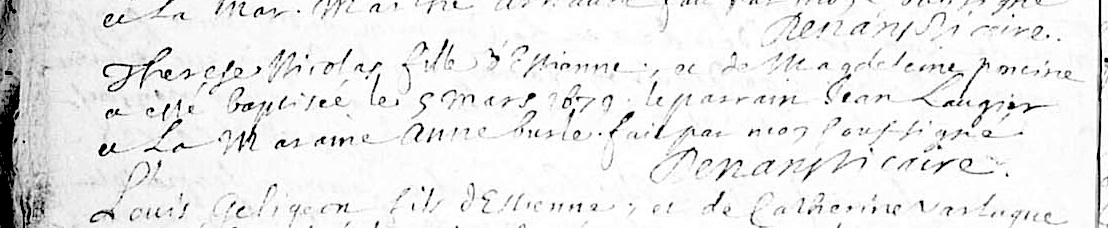 et La Mar. Marthe fait par moy soussigné
Denans Vicaire.
Therese Nicolas fille d'Estienne, et de Magdeleine poncine
a esté baptisée le 5 mars 1679. le parrain Jean Laugier
et La Maraine Anne burle. fait par moy soussigné
Denans Vicaire.
Louis Geligeon fils d'Estienne, et de Catherine vartuque